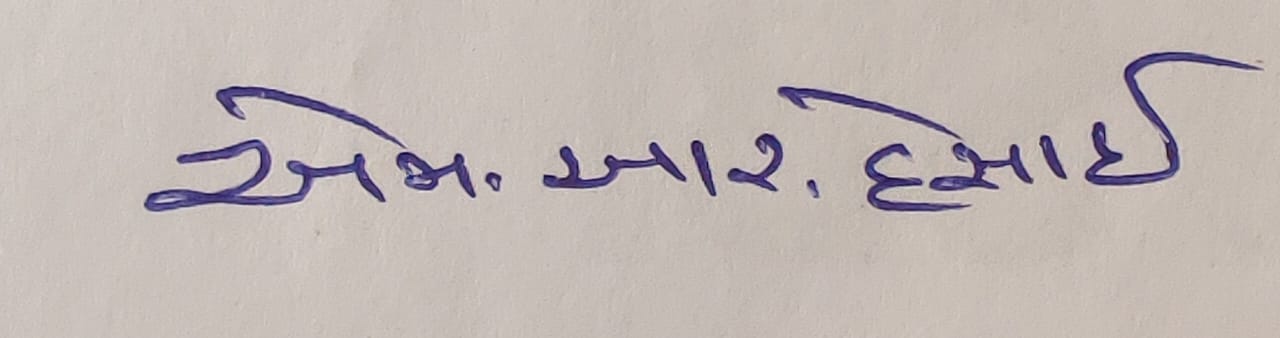 એમ. આર. દેસાઈ